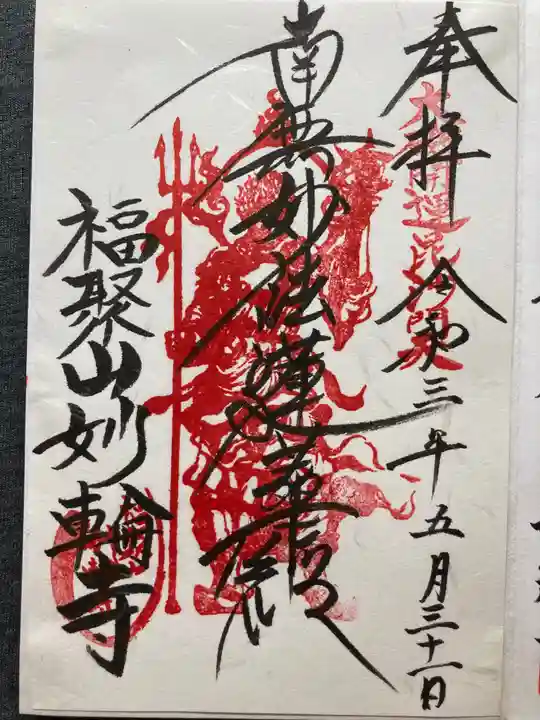 奉拝 令和三年五月三十一日
南無妙法蓮華経
福聚山妙輪寺